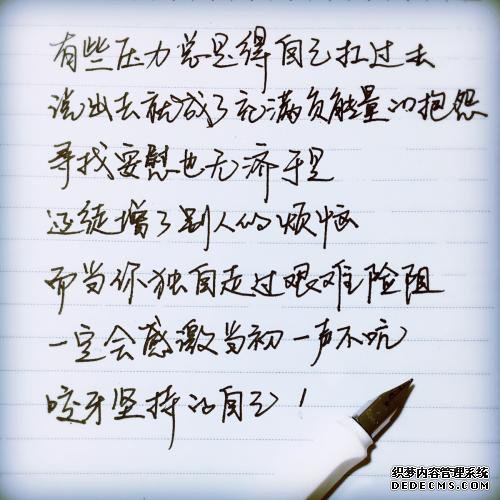 有些压力总是得自己扛过去
说出去就成了充满负能量的抱怨
寻找安慰也无济于是
还徒增了别人的烦恼
而当你独自走过艰难险阻
一定会感激当初一声不吭
咬牙坚持的自己！
织梦内容管理系统
DEDECMS.COM